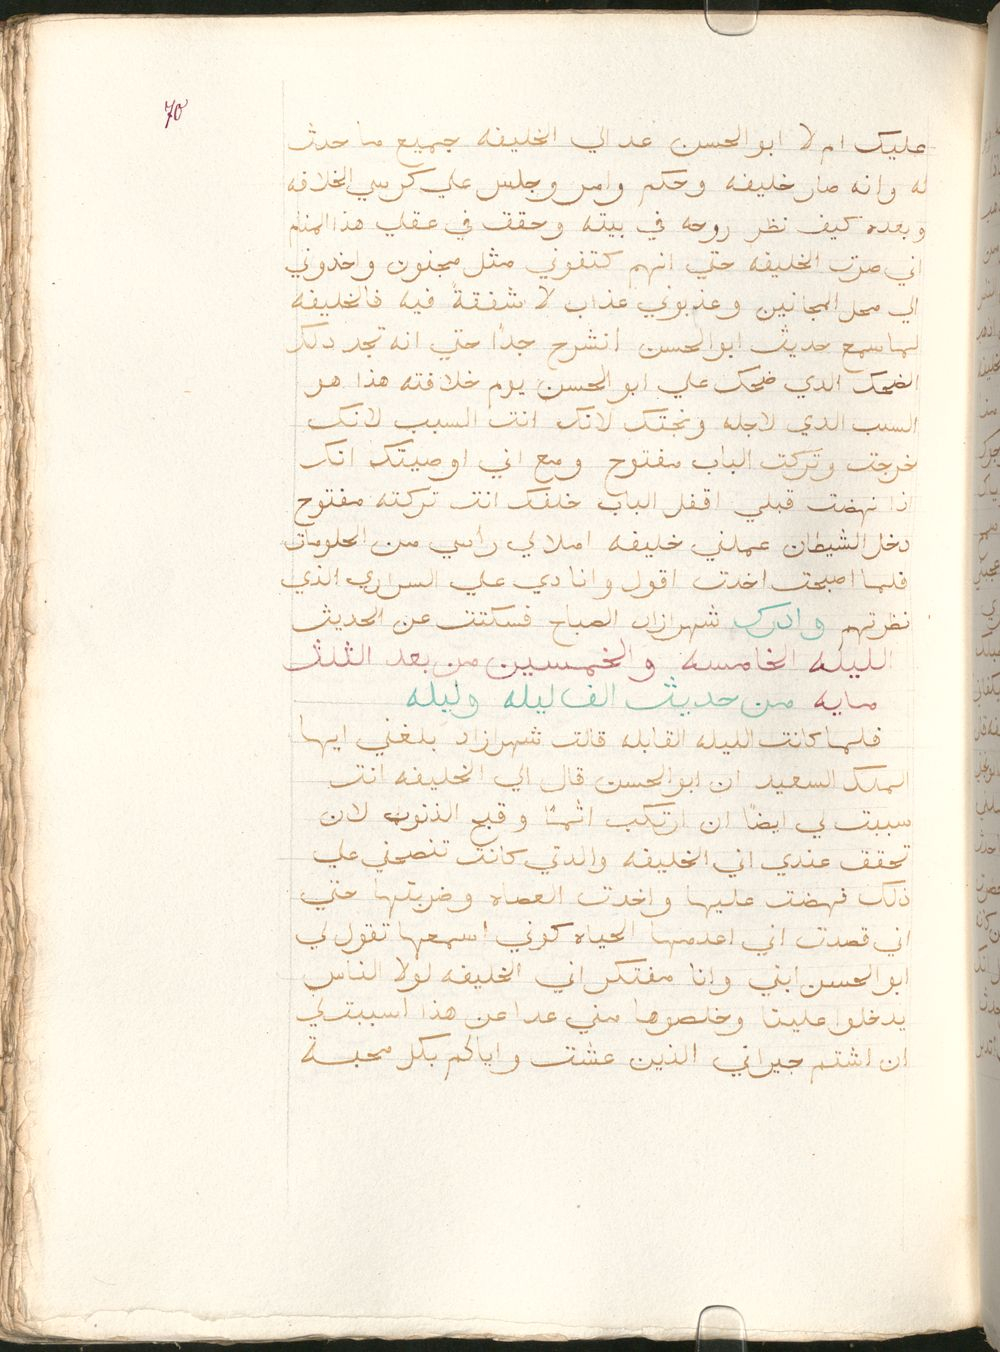 70
عليك ام لا ابو الحسن عد الي الخليفه جميع ما حدث
له وانه صار خليفه وحكم وامر وجلس علي كرسي الخلافه
وبعده كيف نظر روحه في بيته وحقق في عقله هذا المنام
اني صرت الخليفه حتي انهم كتفوني مثل مجنون واخدوني
الي محل المجانين وعذبوني عذاب لا شفقةً فيه فالخليفه
لما سمع حديث ابو الحسن انشرح جدًا حتي انه تجد دلك
الضحك الدي ضحك علي ابو الحسن يوم خلافته هذا هو
السبب الدي لاجله وبختك لانك انت السبب لانك
خرجت وتركت الباب مفتوح ومع اني اوصيتك انك
اذا نهضت قبلي اقفل الباب خلفك انت تركته مفتوح
دخل الشيطان عملني خليفه املا لي راسي من الحلومات
فلما اصبحت اخدت اقول وانادي علي السراري الذي
نظرتهم وادرك شهرازاد الصباح فسكتت عن الحديث
الليله الخامسه والخمسين من بعد الثلث
مايه من حديث الف ليله وليله
فلما كانت الليله القابله قالت شهرازاد بلغني ايها
الملك السعيد ان ابو الحسن قال الي الخليفه انت
سببت لي ايضًا ان ارتكب اثمًا وقبح الذنوب لان
تحقق عندي اني الخليفه والدتي كانت تنصحني علي
ذلك فهضت عليها واخدت العصاه وضربتها حتي
اني قصدت اني اعدمها الحياه كوني اسمعها تقول لي
ابو الحسن ابني وانا مفتكر اني الخليفه لولا الناس
يدخلوا علينا وخلصوها مني عدا عن هذا اسببت لي
ان اشتم جيراني الذين عشت واياهم بكل محبة